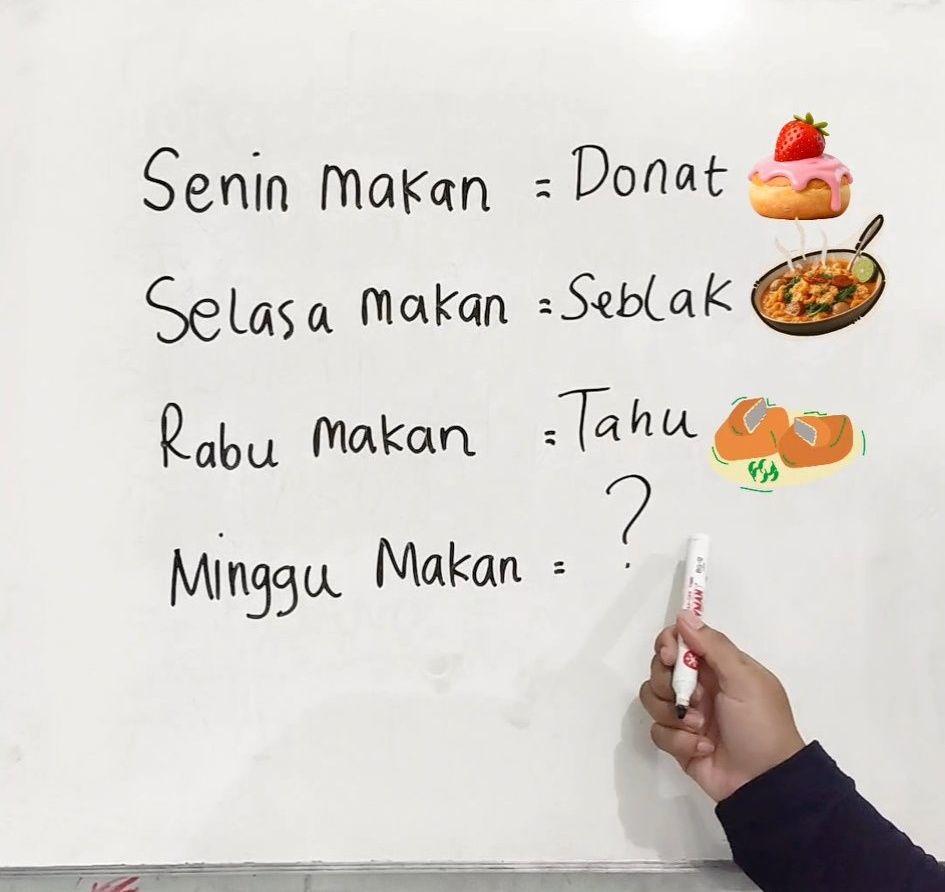 Senin makan = Donat
Selasa makan = Seblak
Rabu makan = Tahu
Minggu Makan = ?